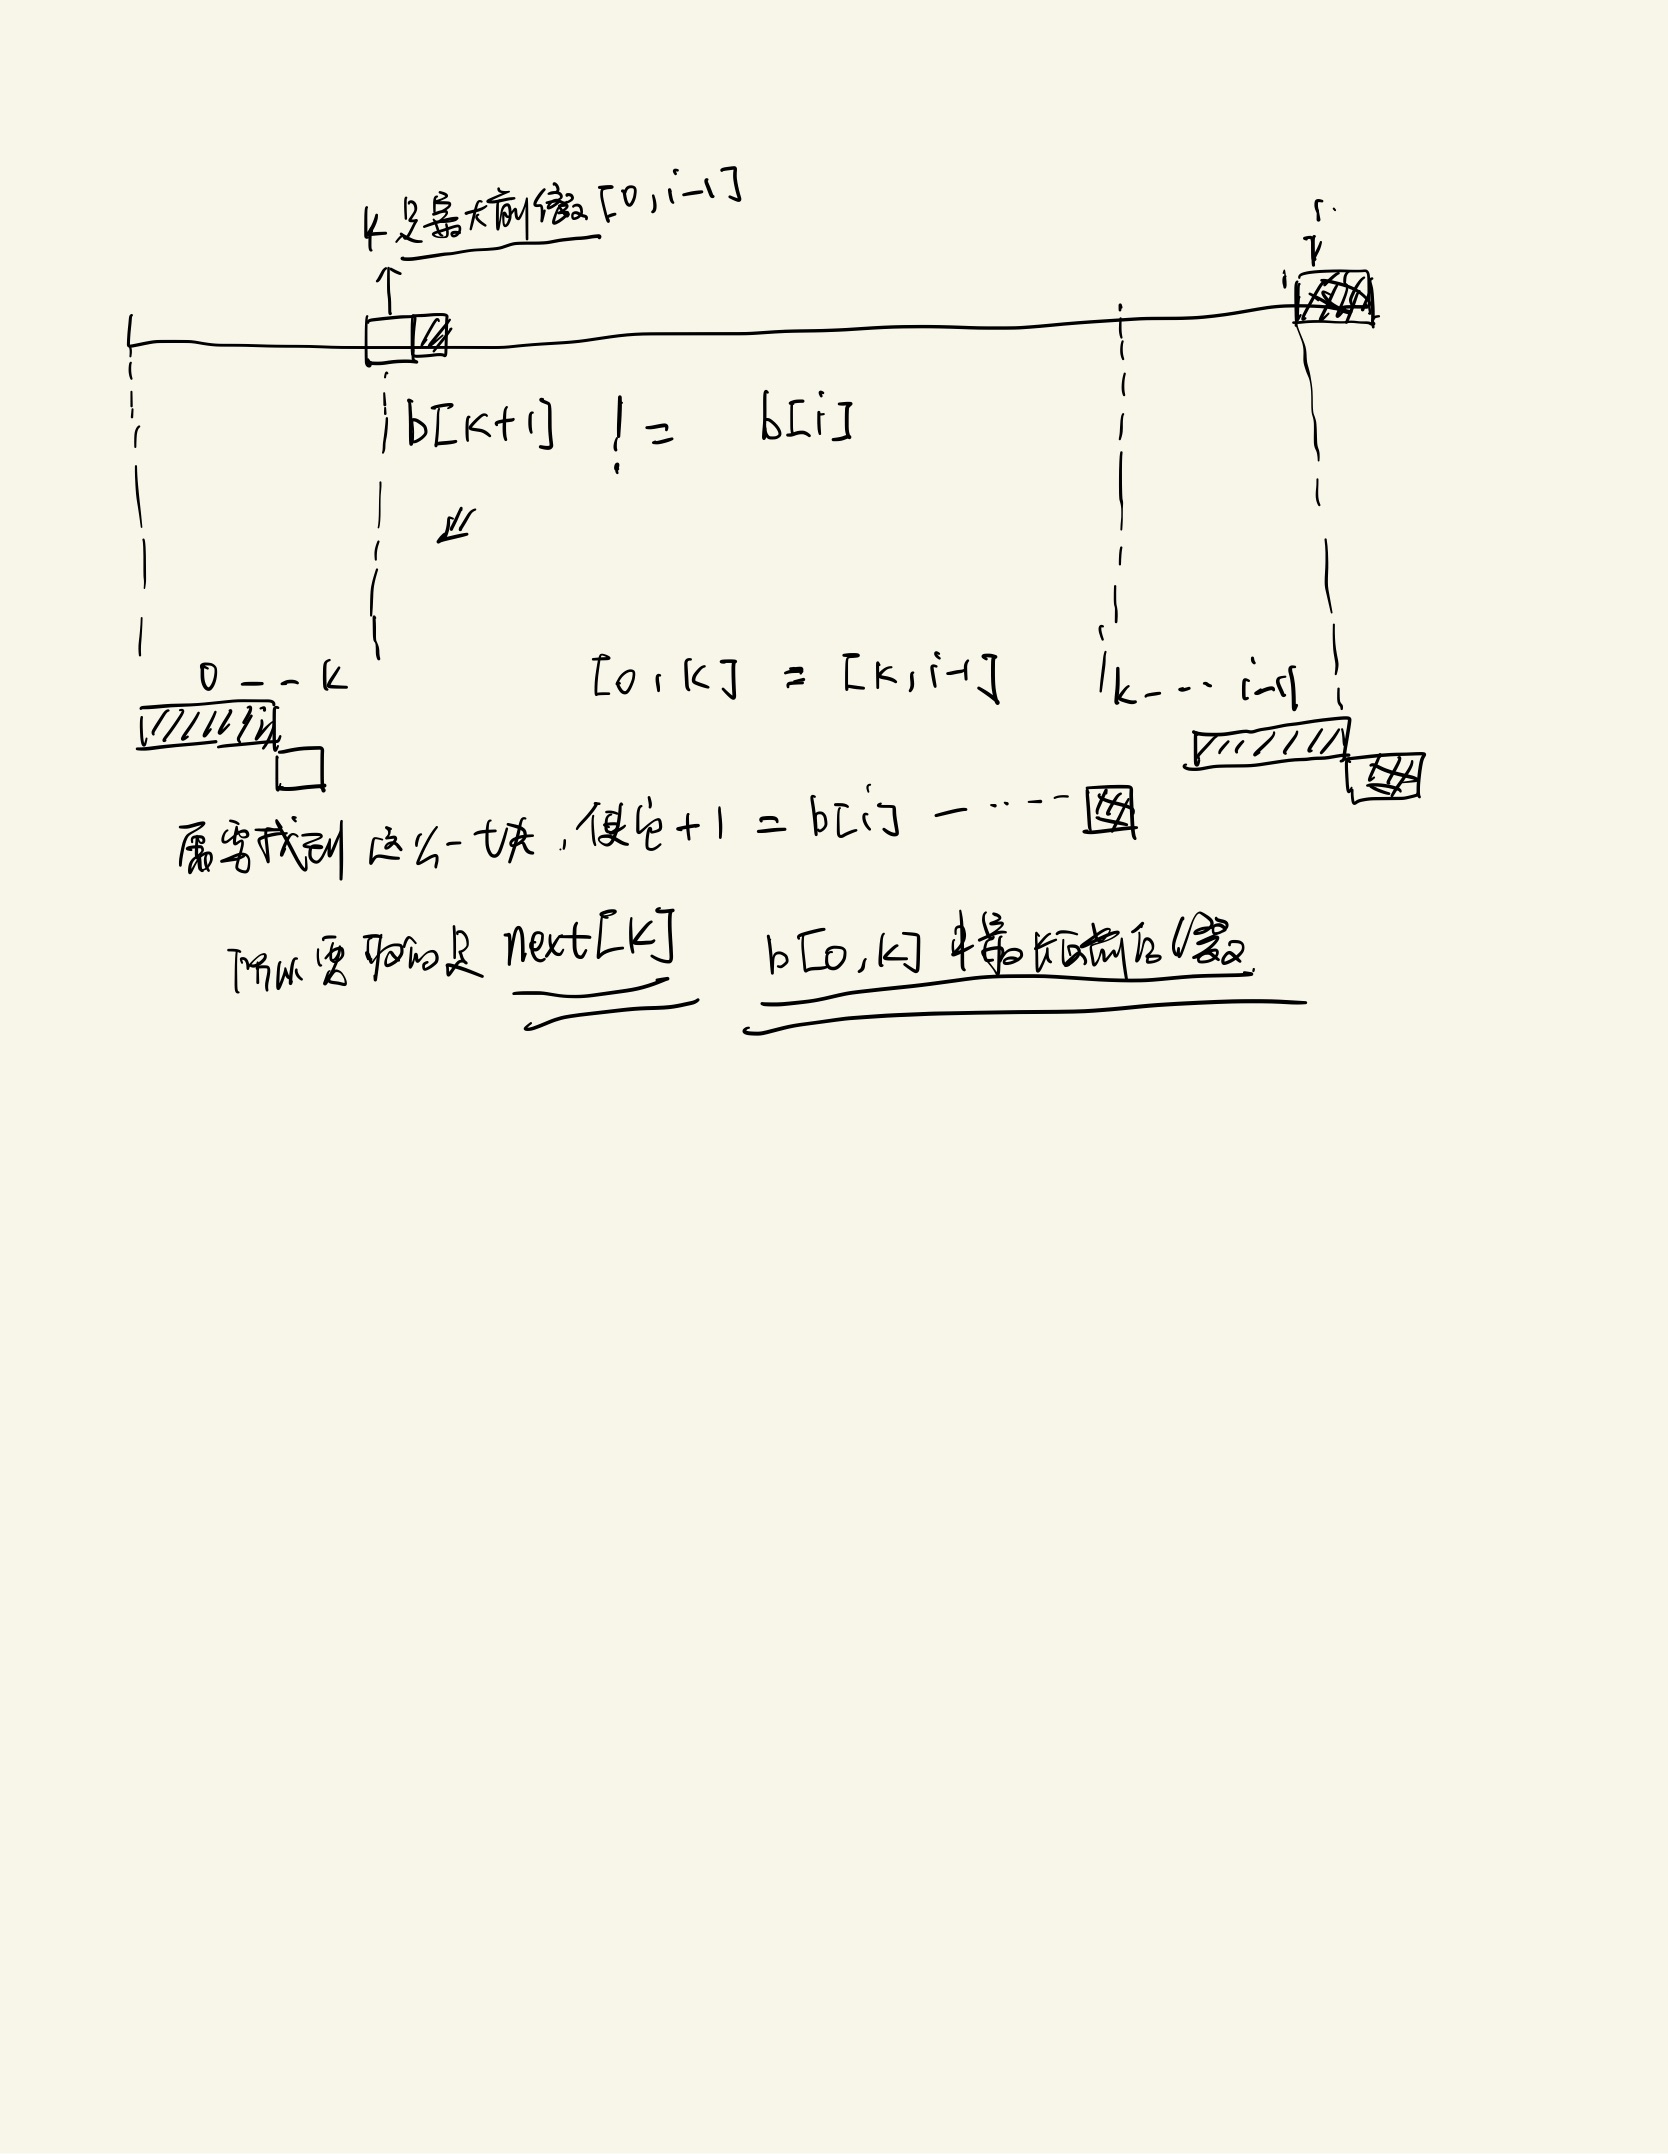 k是最大前缀[0,i-1]
i
b[k+1] != b[i]
0--k [0,k] = [k,i-1] k---i-1
需要找到这么一块,使它+1 = b[i]
所以要求的是 next[k] b[0,k]中最长的前后缀